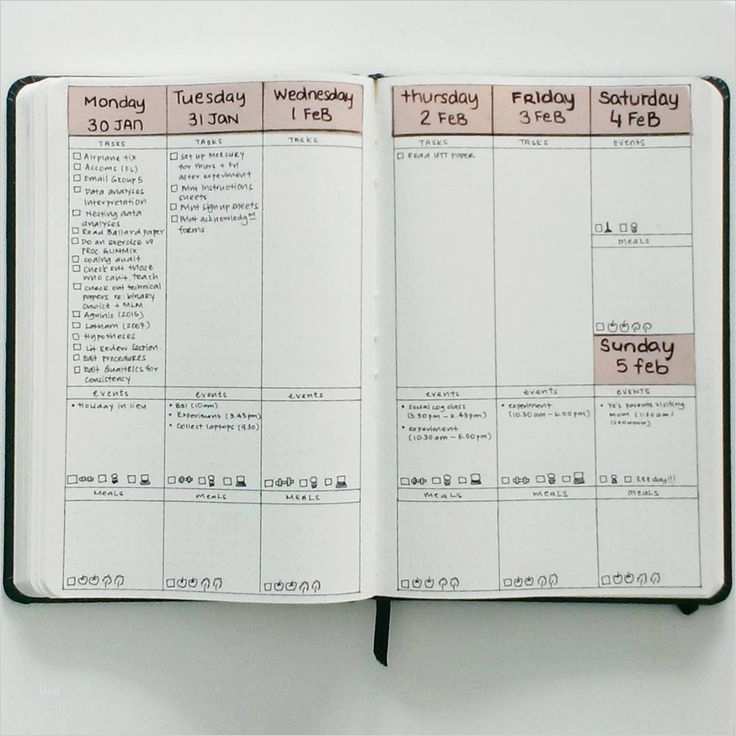 Monday
30 JAN
TASKS
Airplane tix
Accoms
Email Group 5
Data analyses
Interpretation
data
analyses
Read Ballard paper
Do an exercise
PROC GLIMMIX
coding audit
Check out those
who can't teach
Check out technical
papers re: binary
choice + MLM
Aguinis (2015)
Latham
Hypotheses
Lit Review Section
Edit Procedures
Edit Qualtrics for
consistency
events
Holiday in lieu
MEALS
Tuesday
31 JAN
TASKS
Set up Mercury
for Thurs + Fri
after experiment
Print Instructions
sheets
Print sign up sheets
Print acknowledgmt
forms
events
(10am)
(3.45pm)
Collect laptops (9.30)
MEALS
Wednesday
1 FeB
TASKS
events
MEALS
thursday
2 FeB
TASKS
Read UTT PAPER
events
Social cog class
experiment
(10.30am - 6.00pm)
MEALS
FRIday
3 FeB
TASKS
events
experiment
(10.30am - 6.00pm)
MEALS
Saturday
4 FeB
EVENTS
meals
Sunday
5 feb
EVENTS
parents visiting
meals